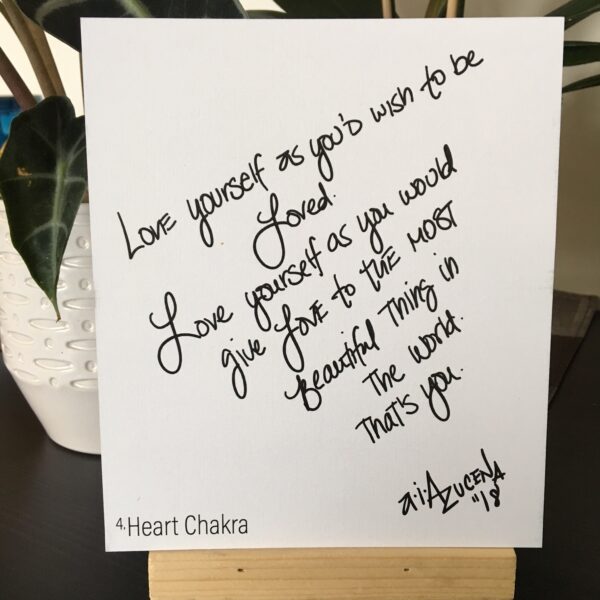 Love yourself as you'd wish to be
Loved.
Love yourself as you would
give Love to the MOST
Beautiful Thing in
The World.
That's you.
a.i. AZUCENA
"18
4. Heart Chakra